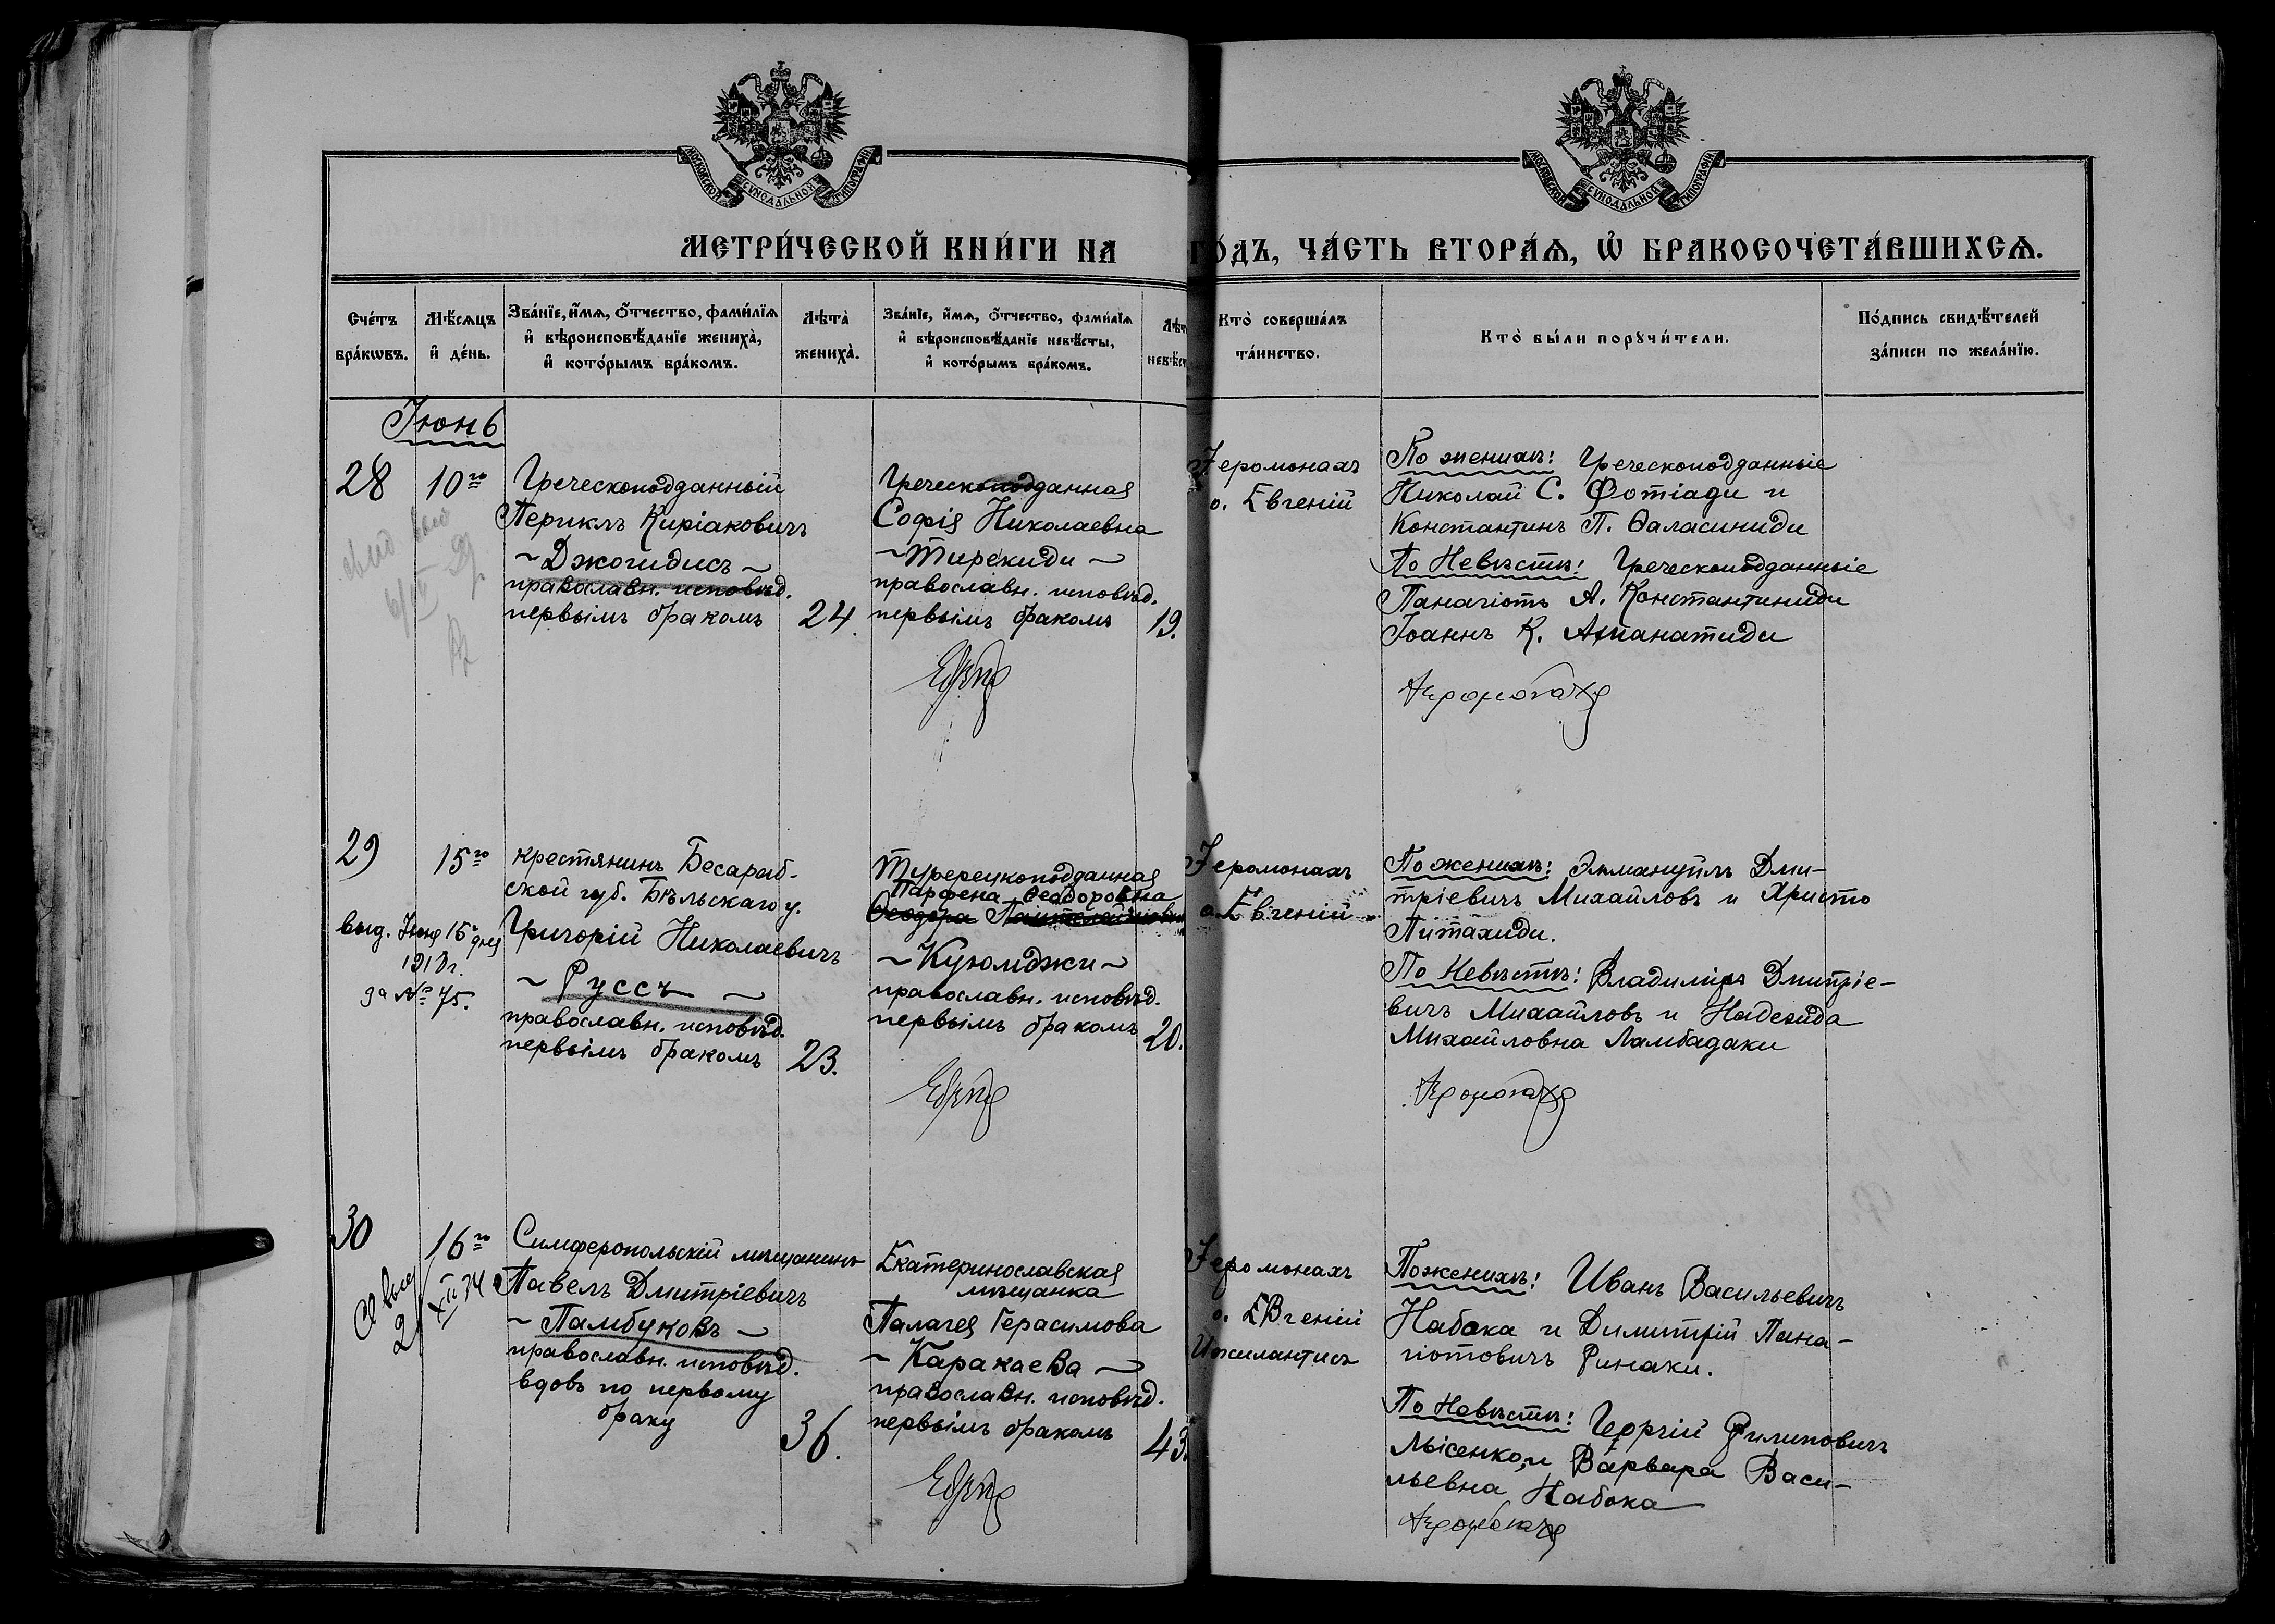 МОСКОВСКОЙ СѴНОДАЛЬНОЙ ТИПОГРАФІИ
МОСКОВСКОЙ СѴНОДАЛЬНОЙ ТИПОГРАФІИ
МЕТРИ́ЧЕСКОЙ КНИ́ГИ НА ГО́ДЪ, ЧА́СТЬ ВТОРА́Ѧ, Ѡ҆ БРАКОСОЧЕТА́ВШИХСѦ.
Счéтъ
брáкѡвъ.
Мѣ́сѧцъ
и҆ дéнь.
Звáнїе, и҆́мѧ, ѻ҆́тчество, фами́лїѧ
и҆ вѣроисповѣ́данїе женихà,
и҆ котóрымъ брáкомъ.
Лѣтà
женихà.
Звáнїе, и҆́мѧ, ѻ҆́тчество, фами́лїѧ
и҆ вѣроисповѣ́данїе невѣ́сты,
и҆ котóрымъ брáкомъ.
Лѣт
невѣ́ст
Ктò совершáлъ
тáинство.
Ктò бы́ли порꙋчи́тели.
Пóдпись свидѣ́телей
зáписи по желáнїю.
Іюнь
28
10го
Греческоподданный
Периклъ Киріаковичъ
~Джогидисъ~
православн. исповѣд.
первымъ бракомъ
24.
Греческоподданная
Софія Николаевна
~Тирекиди~
православн. исповѣд.
первымъ бракомъ
19.
Іеромонахъ
о. Евгеній
По женихѣ: Греческоподданные
Николай С. Фотіади и
Константинъ П. Ѳаласиниди
По Невѣстѣ: Греческоподданные
Панагіотъ А. Константиниди
Іоаннъ К. Аманатиди
29
15го
выд. Іюня 15 дня
1918 г.
за № 75.
крестянинъ Бесараб-
ской губ. Бѣльскаго у.
Григорій Николаевичъ
~Руссъ~
православн. исповѣд.
первымъ бракомъ
23.
Туререцкоподданная
Парфена Ѳеодоровна
Ѳеодора
~Куюмджи~
православн. исповѣд.
первымъ бракомъ
20.
Іеромонахъ
о. Евгеній
По женихѣ: Эммануилъ Дми-
тріевичъ Михайловъ и Христо
Питахиди.
По Невѣстѣ: Владиміръ Дмитріе-
вичъ Михайловъ и Надежда
Михайловна Ламбадаки
30
16го
Симферопольскій мѣщанинъ
Павелъ Дмитріевичъ
~Памбуковъ~
православн. исповѣд.
вдовъ по первому
браку
36.
Екатеринославская
мѣщанка
Палагея Герасимова
~Каракаева~
православн. исповѣд.
первымъ бракомъ
43.
Іеромонахъ
о. Евгеній
По женихѣ: Иванъ Васильевичъ
Набока и Димитрій Пана-
гіотовичъ Ринаки.
По Невѣстѣ: Георгій Филиповичъ
Лысенко, и Варвара Васи-
льевна Набока